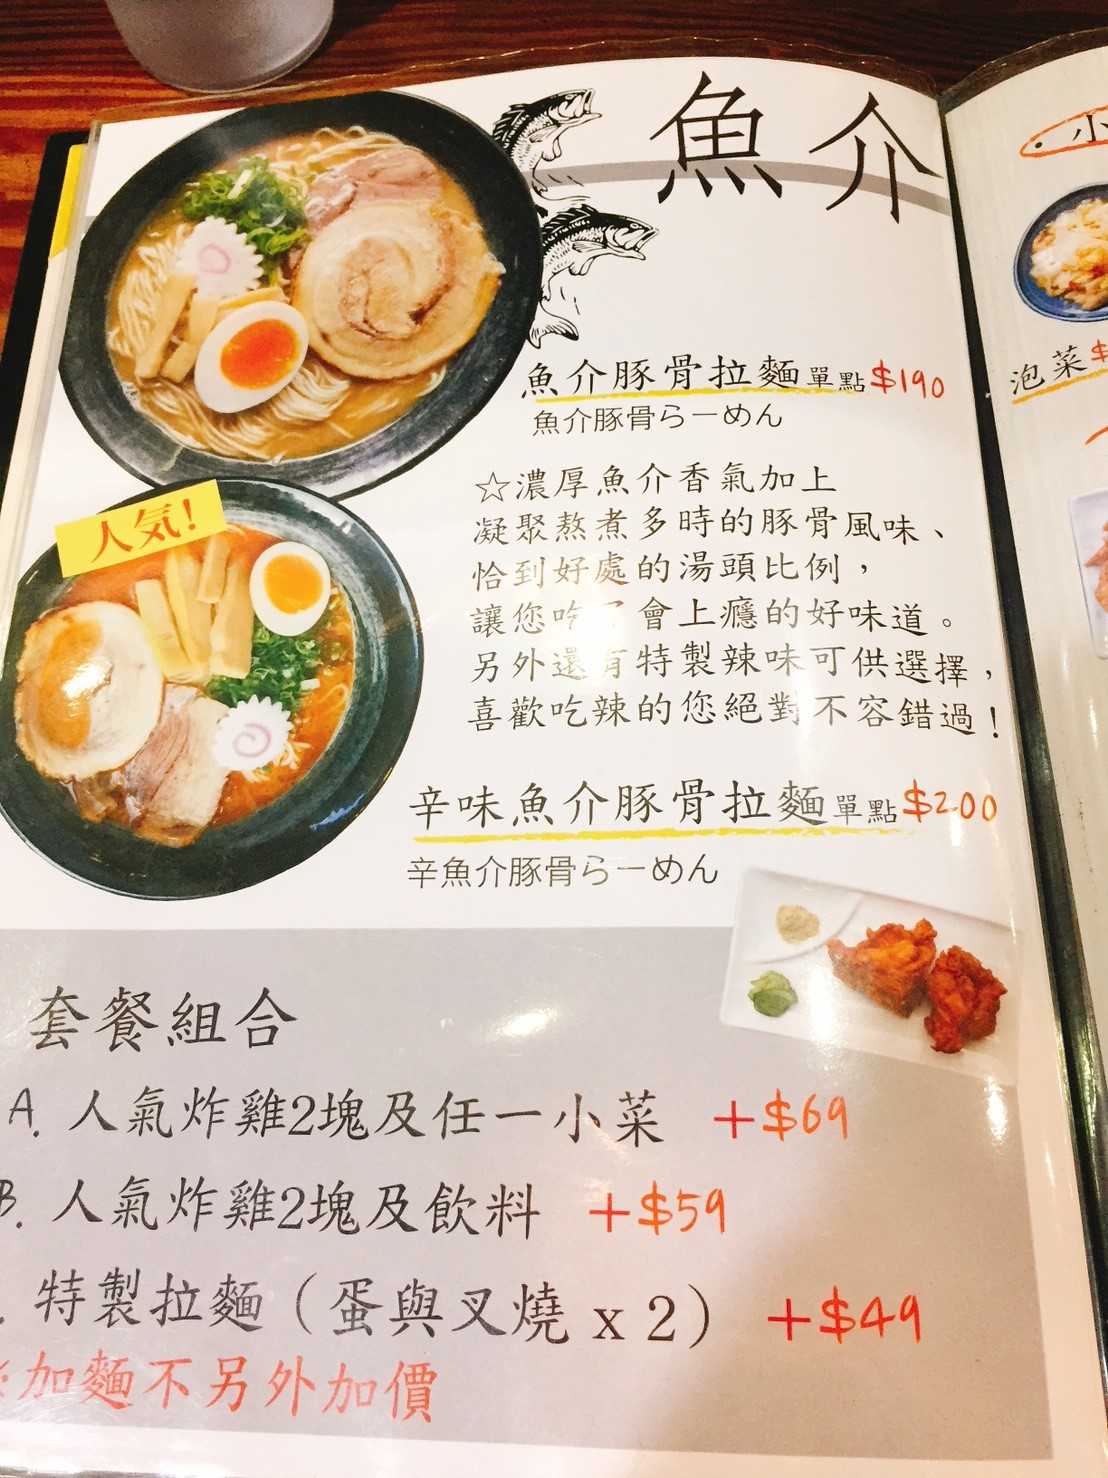 魚介
小
人気!
魚介豚骨拉麵單點$190
魚介豚骨らーめん
泡菜$
☆濃厚魚介香氣加上
凝聚熬煮多時的豚骨風味、
恰到好處的湯頭比例，
讓您吃了會上癮的好味道。
另外還有特製辣味可供選擇，
喜歡吃辣的您絕對不容錯過!
辛味魚介豚骨拉麵單點$200
辛魚介豚骨らーめん
套餐組合
A. 人氣炸雞2塊及任一小菜 +$69
B. 人氣炸雞2塊及飲料 +$59
. 特製拉麵（蛋與叉燒 x 2） +$49
※加麵不另外加價